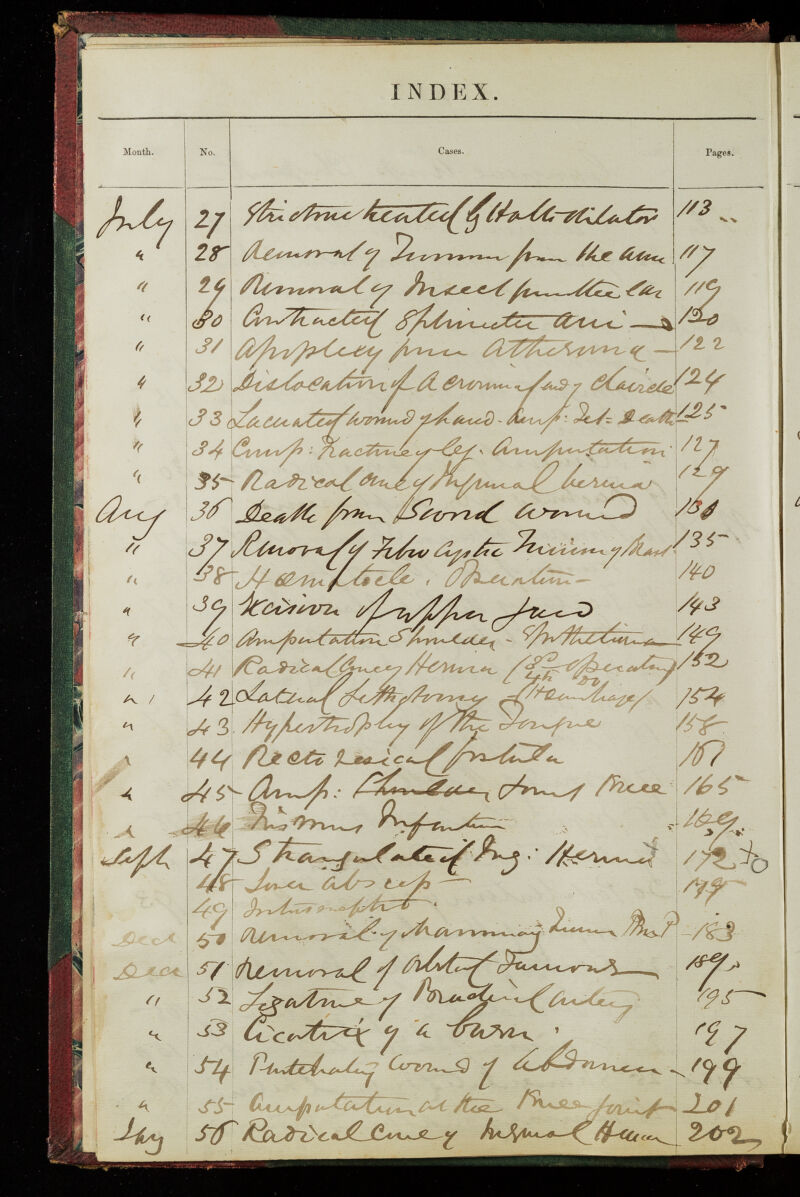 INDEX.
Month. No. Cases. Pages.
July 27 Stricture treated by Holts dilator 113
" 28 Removal of Tumour from the arm 117
" 29 Removal of Insect from the ear 119
" 30 Contracted Sphincter Ani 120
" 31 Apoplexy from Atheroma 122
" 32 Dislocation of Acromial end of Clavicle 124
" 33 Lacerated wound of hand. Amp: Tet= Death 125
" 34 Comp: Fracture of leg. Amputation 127
" 35 Radical cure of Inguinal hernia 129
Aug 36 Death from Sword wound
" 37 Removal of Fibro Cystic Tumour of Breast 135
" 38 Hæmatocele. Operation 140
" 39 Excision of upper Jaw 143
" 40 Amputation Shoulder - Epithelioma 149
" 41 Radical Cure of Hernia (3rd operation) 152
4th Do
" 42 Lateral Lithotomy (Hæmorrhage) 154
" 43 Hypertrophy of the Tongue 158
" 44 Recto Vesical fistula 161
" 45 Amp: Shoulder Joint Knee 165
" 46 Trismus Infantum 169
Sept 47 Strangulated Ing: Hernia 172
48 Liver Abscess
49
Dec 50 Removal of Mammary Tumour 183
Dec 51 Removal of Orbital Tumour 189
" 52 Ligature of Brachial Artery 195
" 53 Cicatrix of a burn. 197
" 54 Penetrating Wound of Abdomen 199
" 55 Amputation at the Knee Joint 201
56 Radical Cure of Inguinal Hernia 202